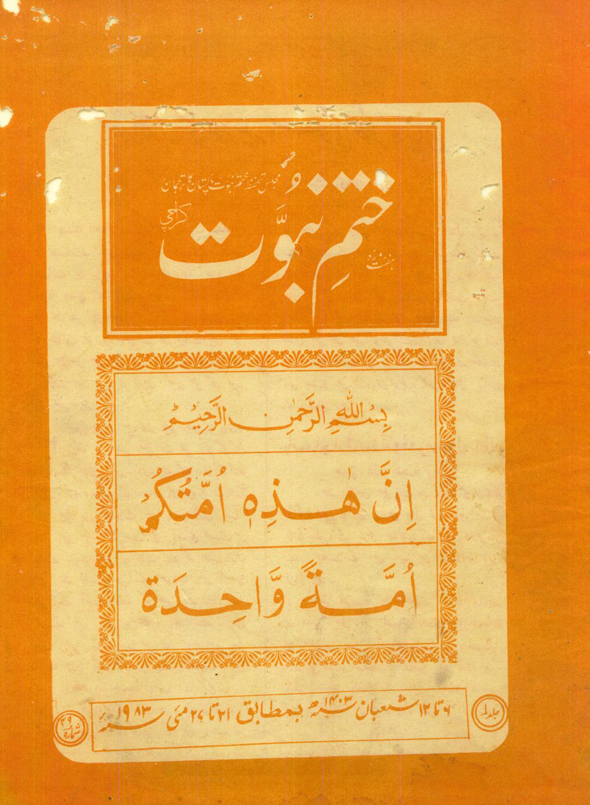 مجلس تحفظ ختم نبوت پاکستان کا ترجمان
ہفت روزہ
ختم نبوّت
کراچی
بِسْمِ اللّٰهِ الرَّحْمٰنِ الرَّحِيْمِ
اِنَّ هٰذِهٖ اُمَّتُكُمْ
اُمَّةً وَّاحِدَةً
جلد ۱
۶ تا ۱۲ شعبان ۱۴۰۳ھ بمطابق ۲۱ تا ۲۷ مئی ۱۹۸۳ء
شمارہ ۴۹